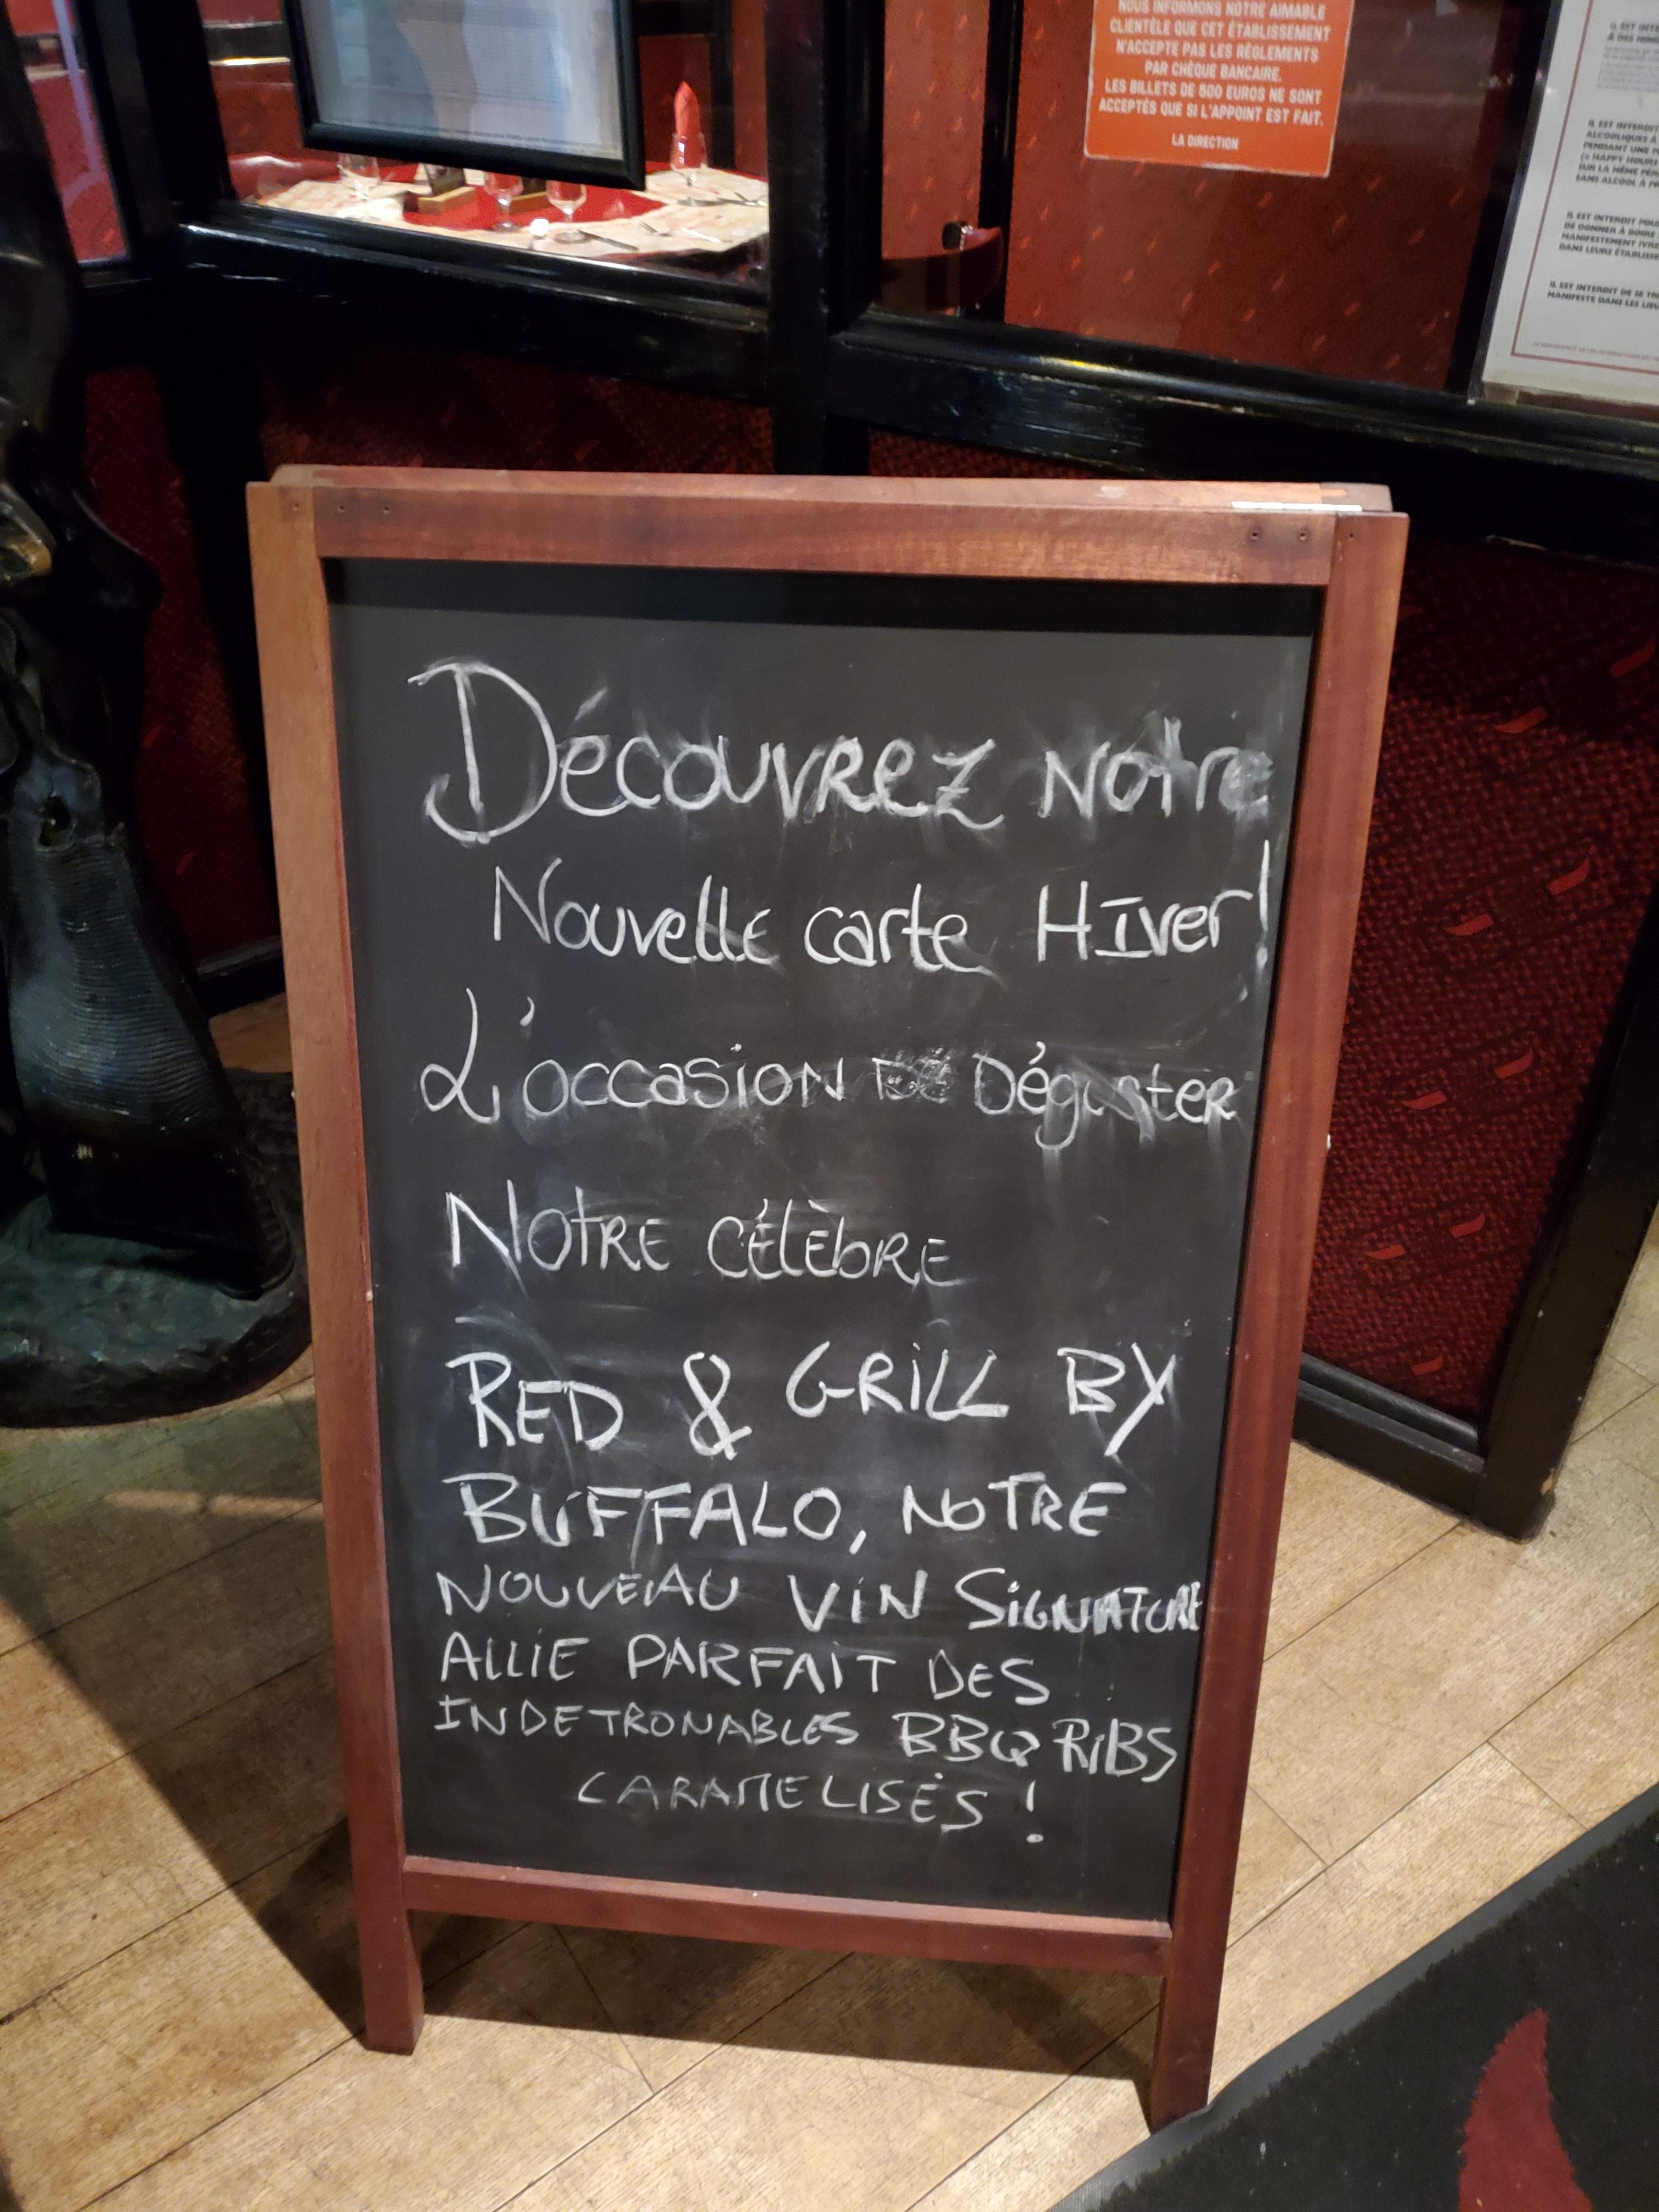 NOUS INFORMONS NOTRE AIMABLE
CLIENTÈLE QUE CET ÉTABLISSEMENT
N'ACCEPTE PAS LES RÈGLEMENTS
PAR CHÈQUE BANCAIRE.
LES BILLETS DE 500 EUROS NE SONT
ACCEPTÉS QUE SI L'APPOINT EST FAIT.
LA DIRECTION
IL EST INTERDIT
ALCOOLIQUES À
PENDANT UNE
(« HAPPY HOURS
SUR LA MÊME
SANS ALCOOL À
IL EST INTERDIT
DE DONNER À BOIRE
MANIFESTEMENT
DANS LEURS
IL EST INTERDIT DE SE
MANIFESTE DANS LES
Découvrez Notre
Nouvelle carte HIver!
L'occasion DE Déguster
NOTRE CÉLÈBRE
RED & GRILL BY
BUFFALO, NOTRE
NOUVEAU VIN SIGNATURE
ALLIE PARFAIT DES
INDETRONABLES BBQ RIBS
CARAMELISÉS !